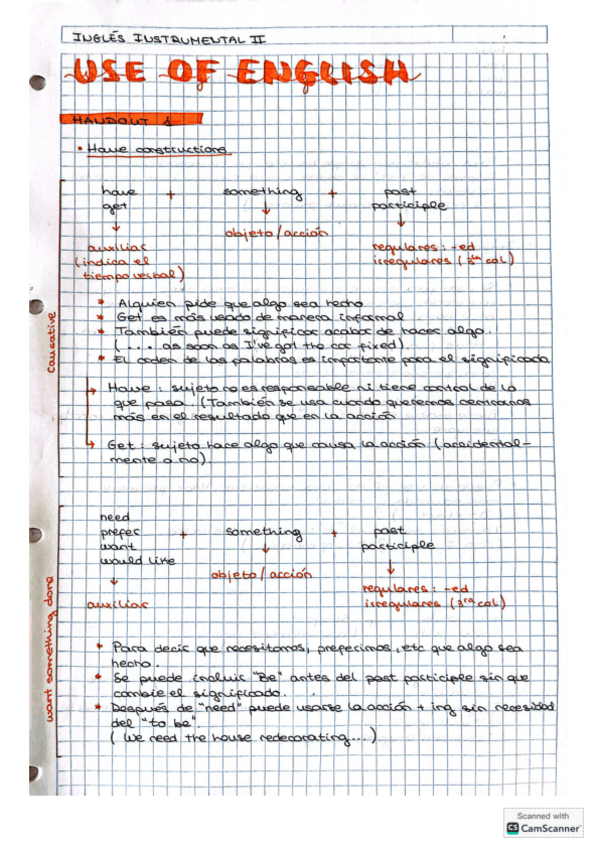 INGLÉS INSTRUMENTAL II
USE OF ENGLISH
HANDOUT 1
• Have constructions
have + something + past
get participle
objeto/acción
auxiliar regulares: -ed
(indica el irregulares (3ra col)
tiempo verbal)
Causative
* Alguien pide que algo sea hecho
* Get es más usado de manera informal
* También puede significar acabar de hacer algo.
(... as soon as I've got the car fixed).
* El orden de las palabras es importante para el significado
→ Have: sujeto no es responsable ni tiene control de lo
que pasa. (También se usa cuando queremos centrarnos
más en el resultado que en la acción
→ Get: sujeto hace algo que causa la acción (accidental-
mente o no).
need
prefer + something + past
want participle
would like
objeto/acción
regulares: -ed
auxiliar irregulares (3ra col)
want something done
* Para decir que necesitamos, preferimos, etc que algo sea
hecho.
* Se puede incluir "Be" antes del past participle sin que
cambie el significado.
* Después de "need" puede usarse la acción + ing sin necesidad
del "to be".
(We need the house redecorating...)
Scanned with
CS CamScanner